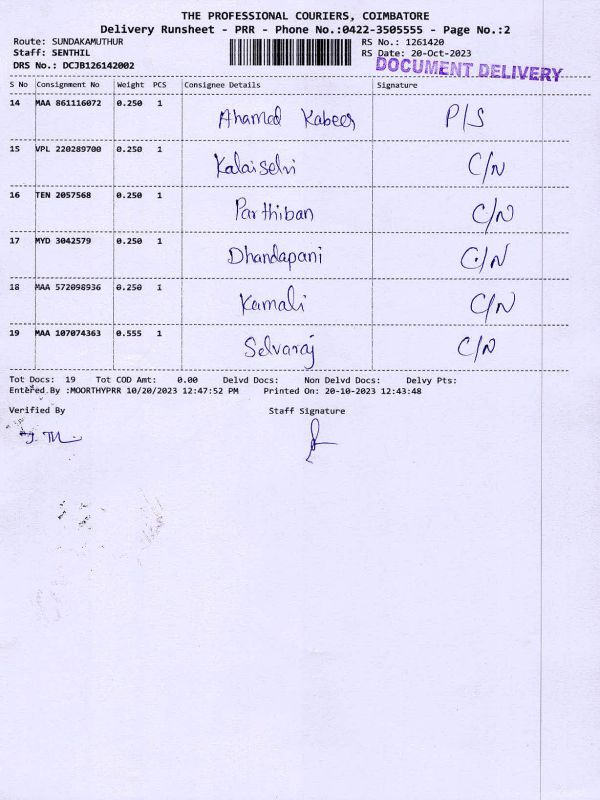 THE PROFESSIONAL COURIERS, COIMBATORE
Delivery Runsheet - PRR - Phone No.:0422-3505555 - Page No.:2
Route: SUNDAKAMUTHUR RS No.: 1261420
Staff: SENTHIL RS Date: 20-Oct-2023
DRS No.: DCJB126142002 DOCUMENT DELIVERY
S No Consignment No Weight PCS Consignee Details Signature
14 MAA 861116072 0.250 1 Ahamed Kabeer P/S
15 VPL 220289700 0.250 1 Kalaiselvi C/N
16 TEN 2057568 0.250 1 Parthiban C/N
17 MYD 3042579 0.250 1 Dhandapani C/N
18 MAA 572098936 0.250 1 Kamali C/N
19 MAA 107074363 0.555 1 Selvaraj C/N
Tot Docs: 19 Tot COD Amt: 0.00 Delvd Docs: Non Delvd Docs: Delvy Pts:
Entered By :MOORTHYPRR 10/20/2023 12:47:52 PM Printed On: 20-10-2023 12:43:48
Verified By Staff Signature